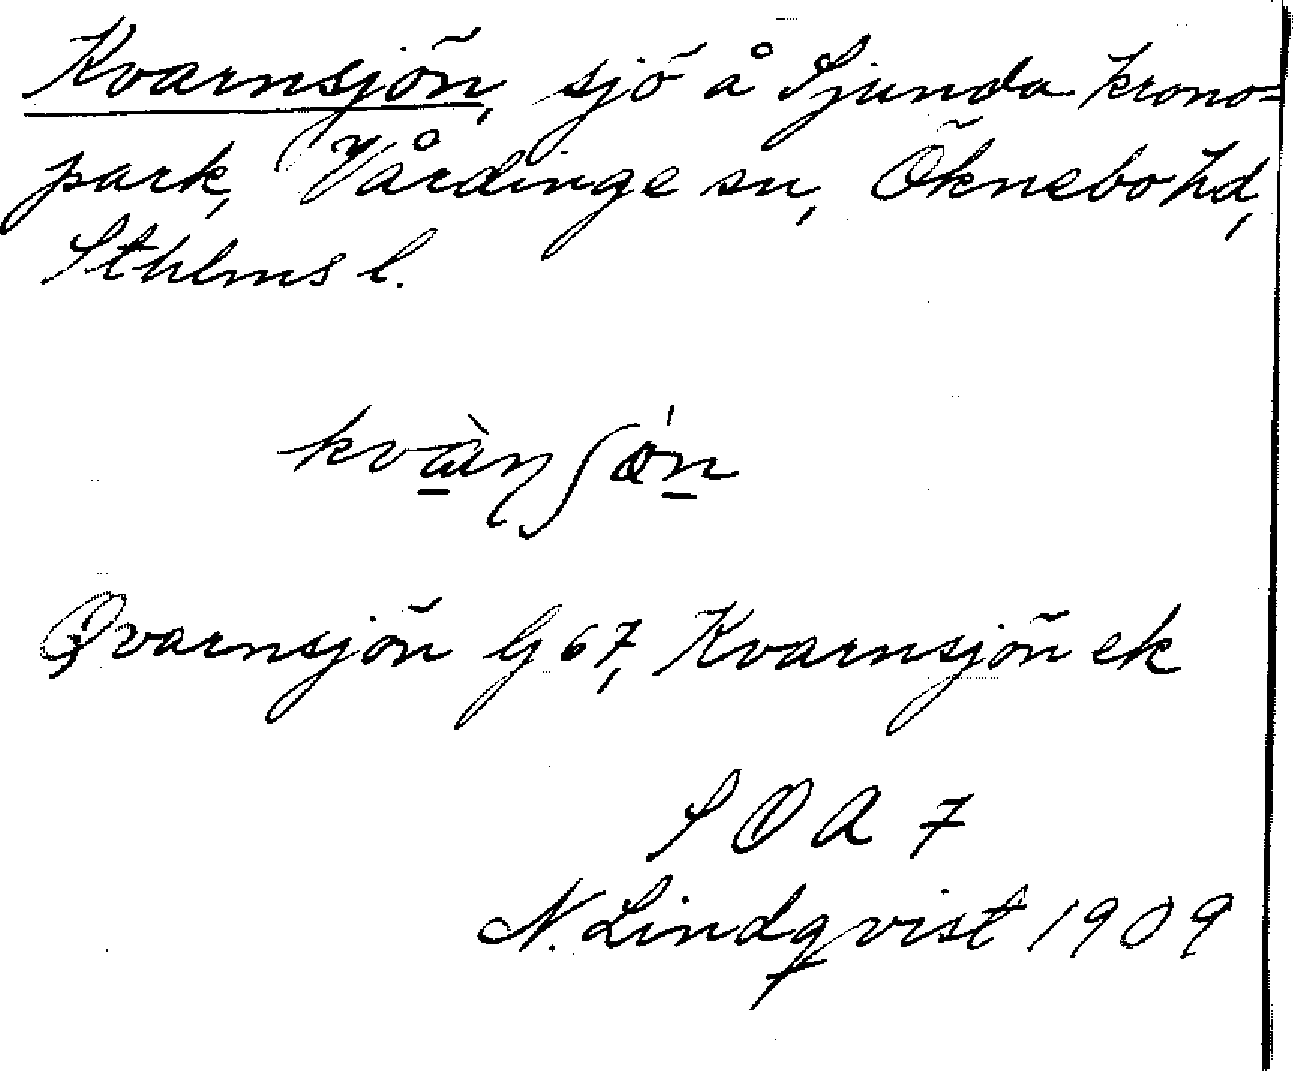 Kvarnsjön, sjö å Sjunda krono-
park, Vårdinge sn, Öknebo hd,
Sthlms l.
kvàɳʃǿn
Qvarnsjön G 67, Kvarnsjön ek
S O A 7
N. Lindqvist 1909